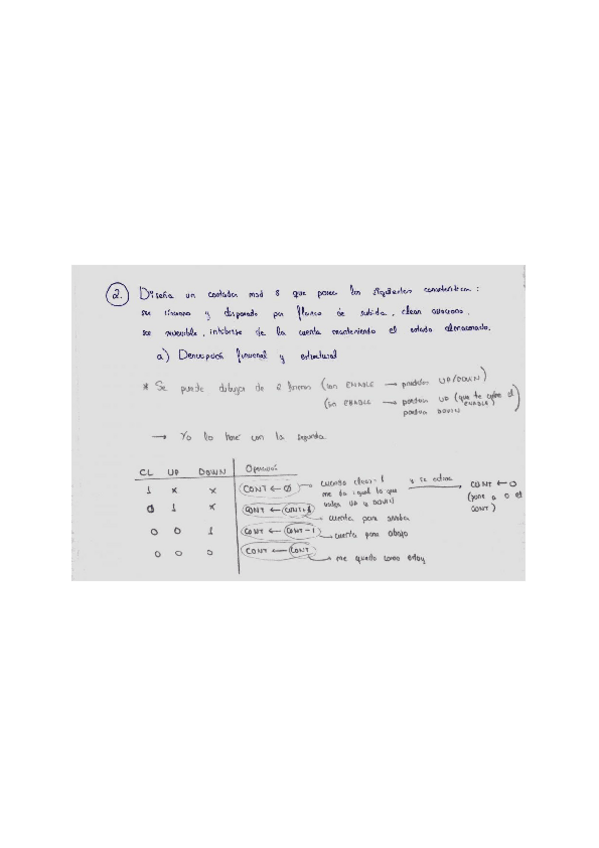 2. Diseña un contador mod 8 que posea las siguientes características:
sea síncrono y disparado por flanco de subida, clear asíncrono,
sea reversible, inhibirse de la cuenta manteniendo el estado almacenado.
a) Descripción funcional y estructural
* Se puede dibujar de 2 formas (con ENABLE → UP/DOWN)
(sin ENABLE → UP (que te cubre el ENABLE)
DOWN)
→ Yo lo haré con la segunda.
CL UP DOWN Operación
1 x x CONT ← 0 → cuando clear=1 me da igual lo que valen UP y DOWN y se activa → CONT ← 0 (pone a 0 el CONT)
0 1 x CONT ← CONT+1 → cuenta para arriba
0 0 1 CONT ← CONT-1 → cuenta para abajo
0 0 0 CONT ← CONT → me quedo como estoy